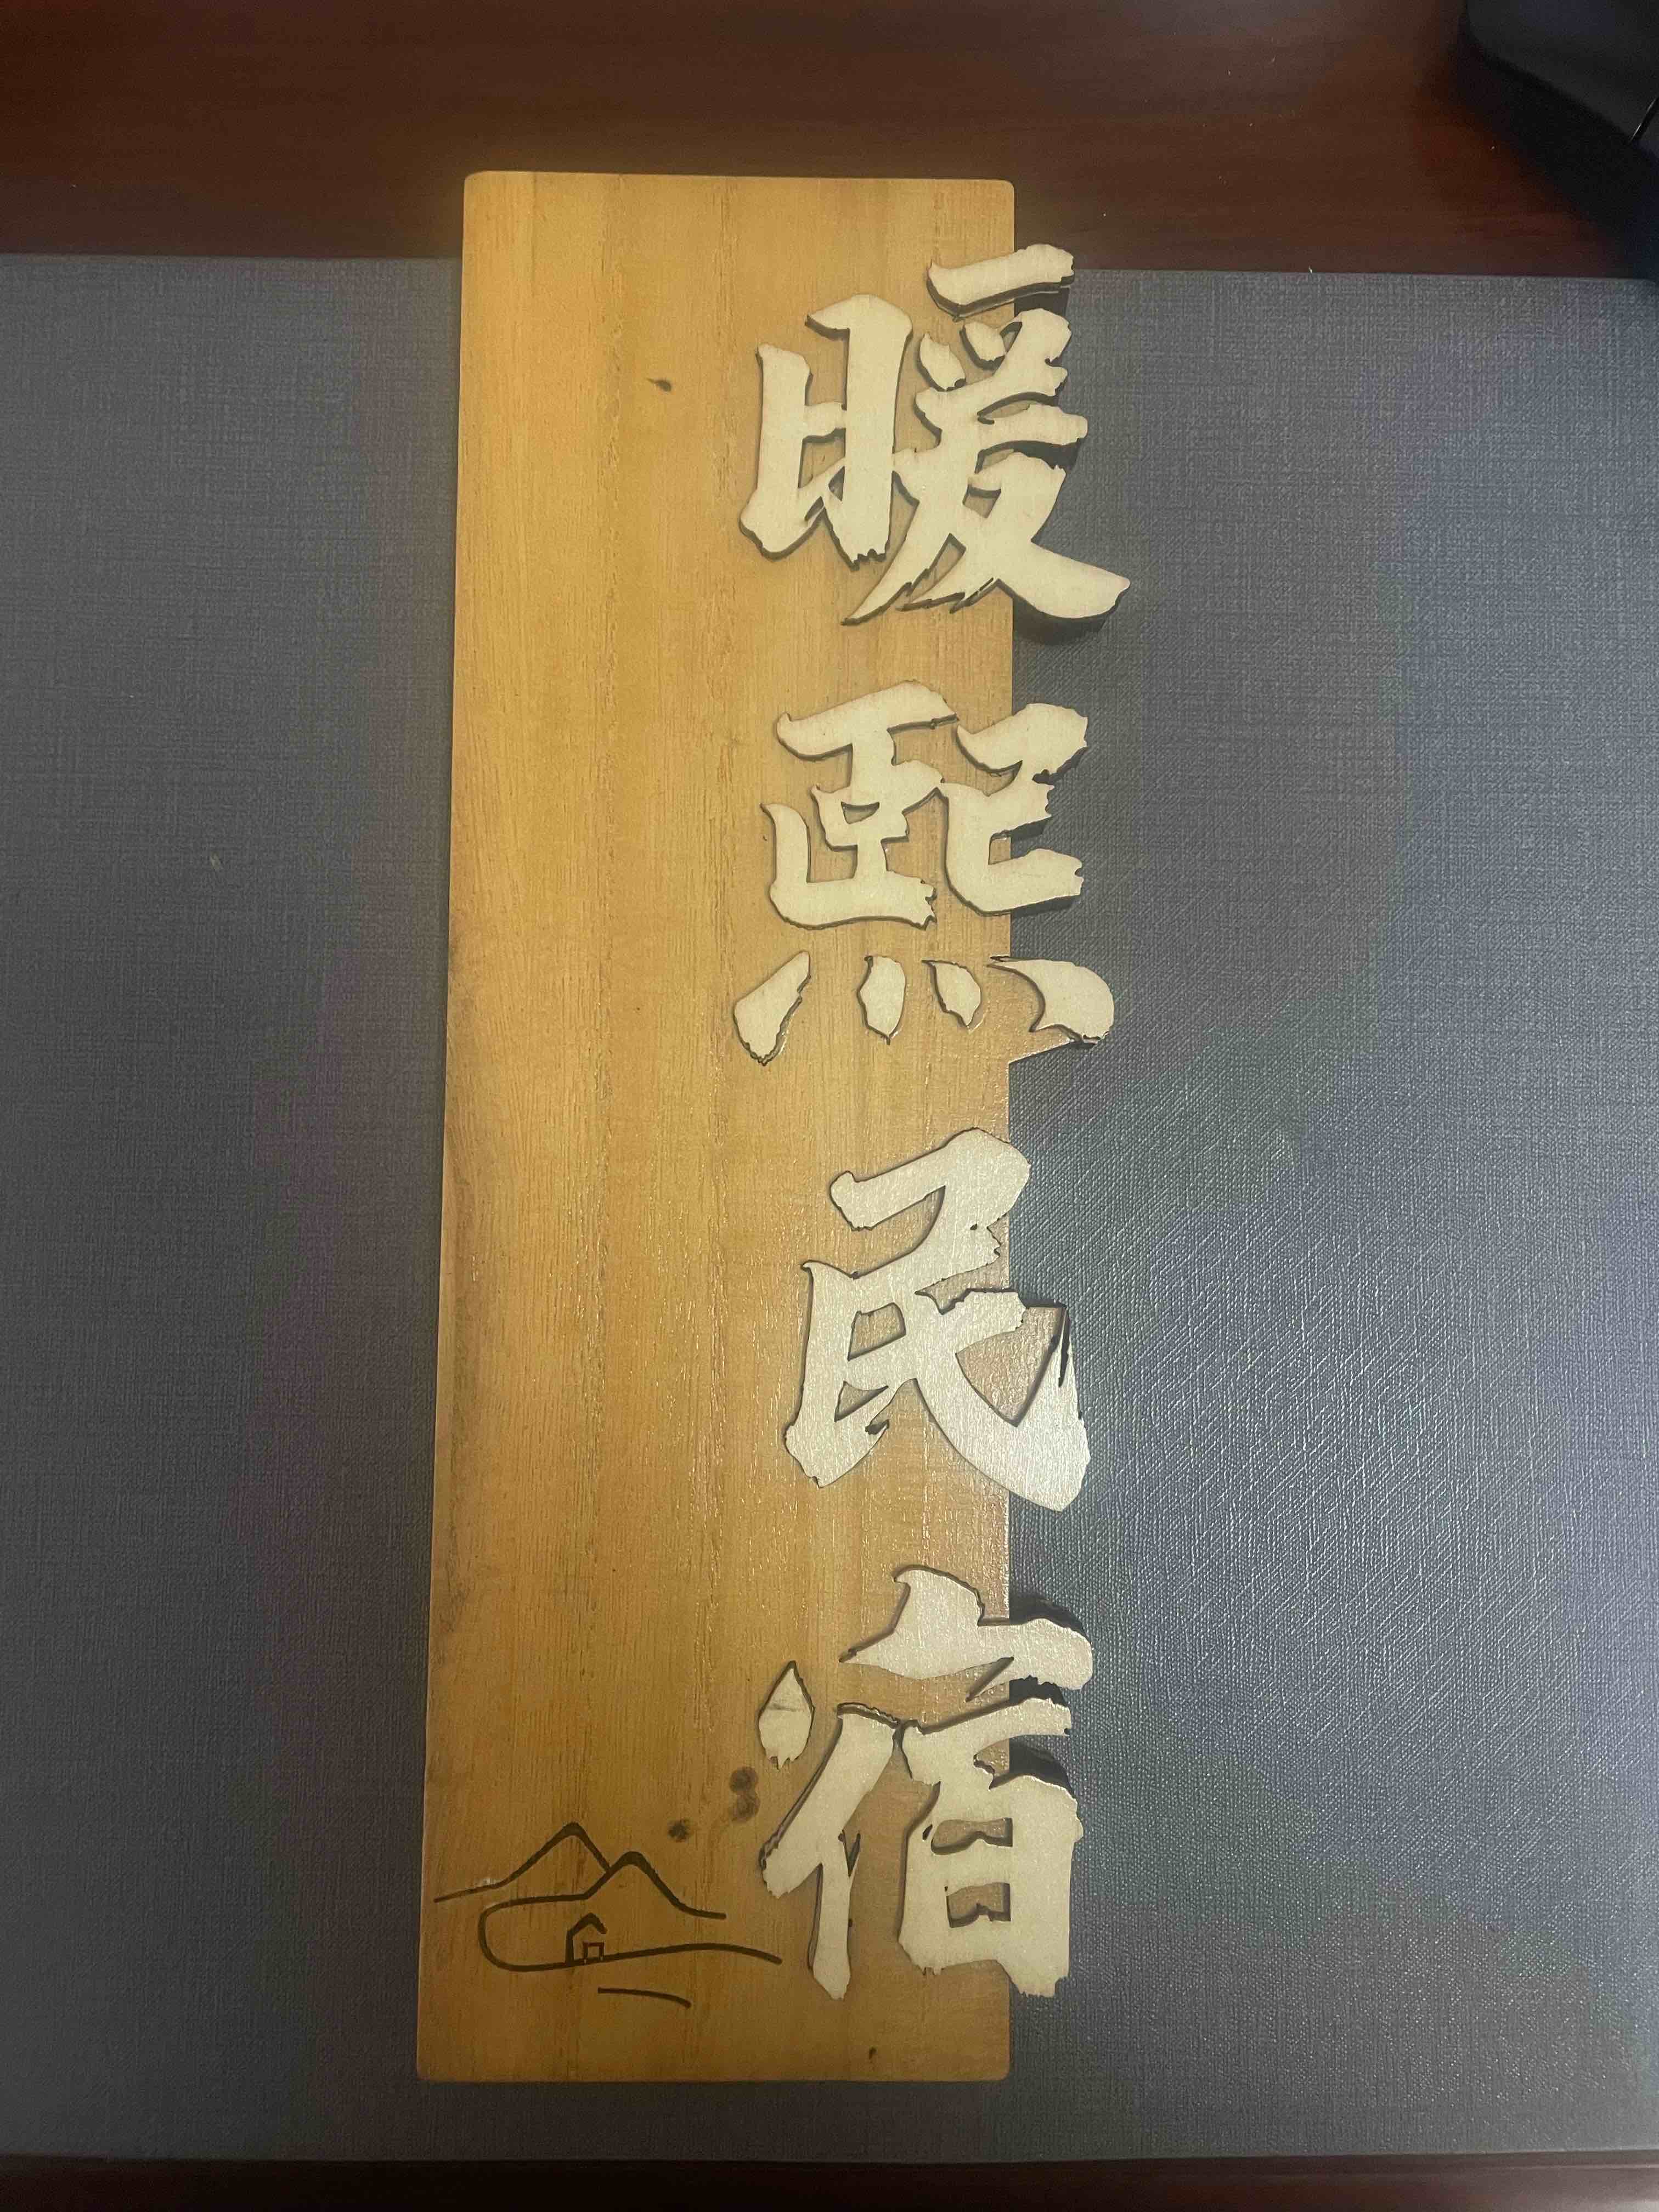 暖熙民宿